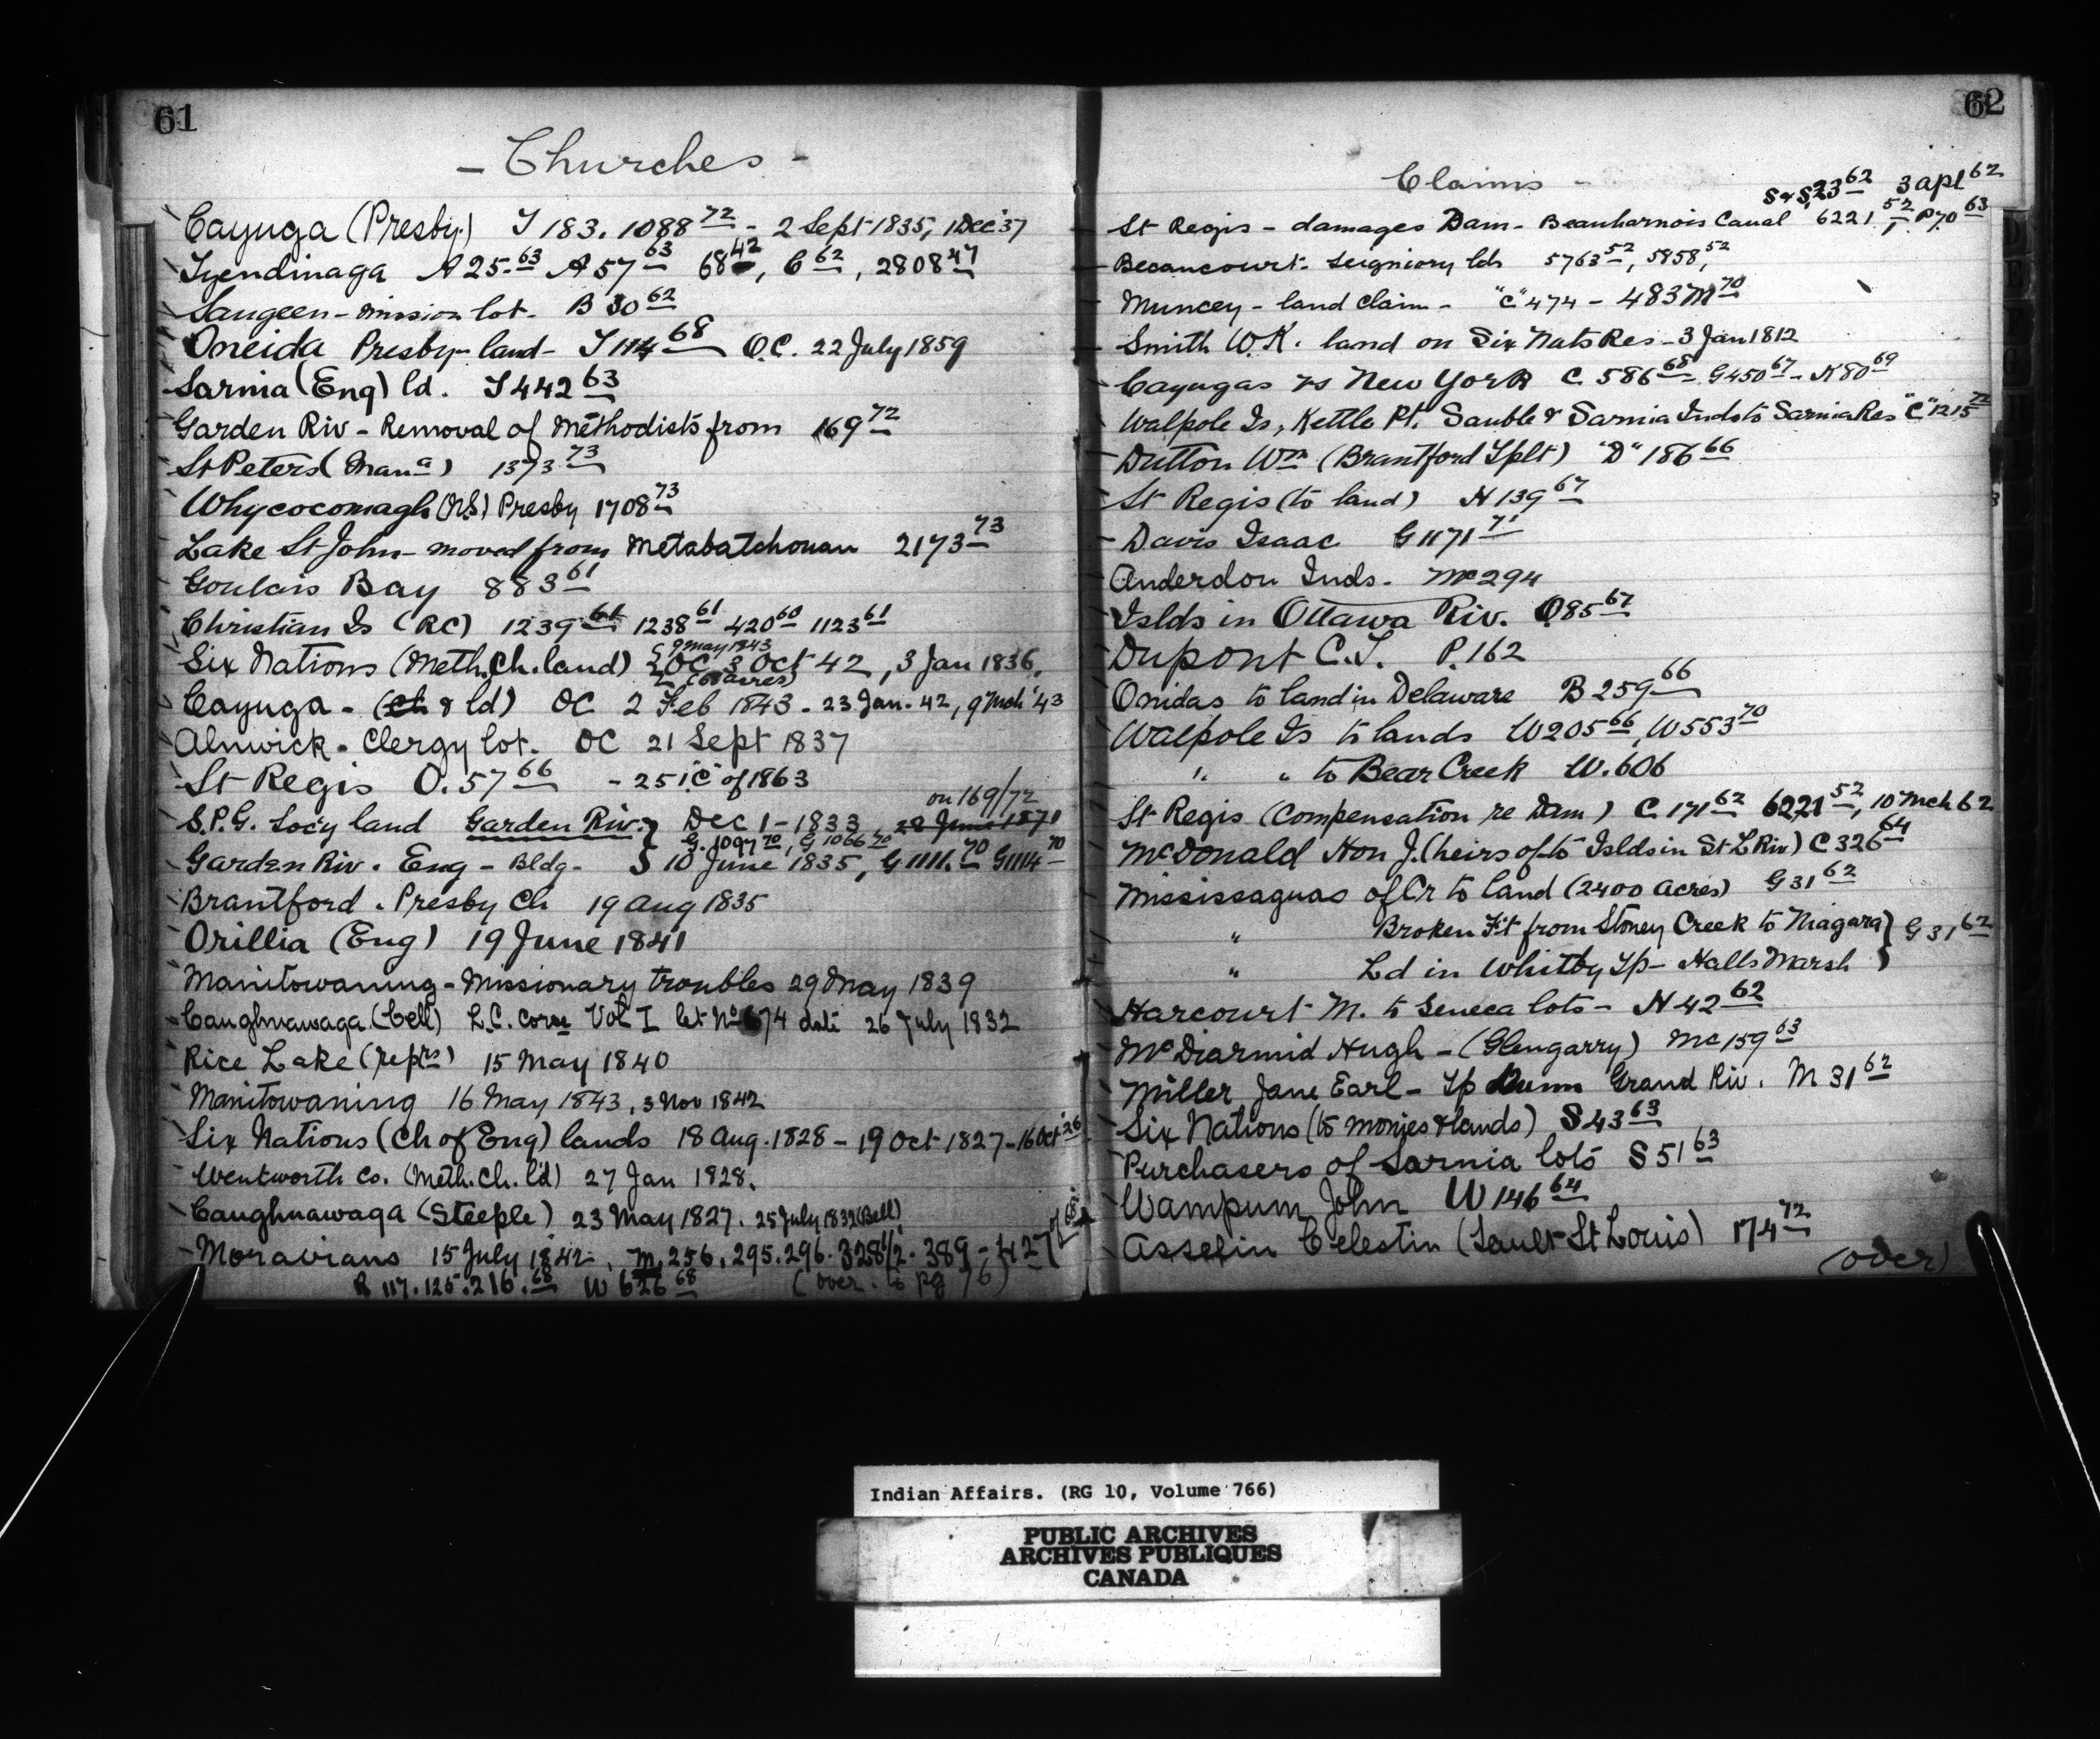 61
- Churches -
Cayuga (Presby) T 183. 1088 72 - 2 Sept 1835, 1 Dec '37
Tyendinaga A 25. 63 A 57 63 68 42, C 62, 2808 47
Saugeen - Mission lot. B 30 62
Oneida Presby - land - T 114 68 O.C. 22 July 1859
Sarnia (Eng) ld. T 442 63
Garden Riv - Removal of Methodists from 169 72
St Peters (Mana) 1373 73
Whycocomagh (N.S.) Presby 1708 73
Lake St John - moved from Metabatchouan 2173 73
Goulais Bay 883 61
Christian Is (RC) 1239 61 1238 61 420 60 1123 61
9 May 1843
Six Nations (Meth. Ch. land) OC 3 Oct 42, 3 Jan 1836,
(60 acres)
Cayuga - (Ch & ld) OC 2 Feb 1843 - 23 Jan. 42, 9 Mch '43
Alnwick - Clergy lot. OC 21 Sept 1837
St Regis O. 57 66 - 251 "C" of 1863
on 169/72
S.P.G. Socy land Garden Riv. } Dec 1 - 1833 28 June 1871
G. 1097 70, G 1066 70
Garden Riv. Eng - Bldg - } 10 June 1835, G 1111. 70 G 1114 70
Brantford . Presby Ch 19 Aug 1835
Orillia (Eng) 19 June 1841
Manitowaning - Missionary troubles 29 May 1839
Caughnawaga (bell) L.C. Corre Vol I let No 674 date 26 July 1832
Rice Lake (reprs) 15 May 1840
Manitowaning 16 May 1843, 3 Nov 1842
Six Nations (Ch of Eng) lands 18 Aug. 1828 - 19 Oct 1827 - 16 Oct '26
Wentworth Co. (Meth. Ch. l'd) 27 Jan 1828.
Caughnawaga (Steeple) 23 May 1827. 25 July 1832 (Bell)
Moravians 15 July 1842, M, 256, 295. 296. 328 1/2. 389 - 427 of 68
R 117. 125. 216. 68 W 626 68 (over. to pg 76)
62
Claims -
S & S, 23 62 3 apl 62
St Regis - damages Dam - Beauharnois Canal 6221. 52, P. 70 63
Becancourt. Seigniory lds 5763 52, 5858, 52
Muncey - land claim - "C" 474 - 483 M 70
Smith W.K. land on Six Nats Res - 3 Jan 1812
Cayugas vs New York C. 586 68 - G 450 67 - K 80 69
Walpole Is, Kettle Pt. Sauble & Sarnia Inds to Sarnia Res "C" 1215 72
Dutton Wm (Brantford Tplt) "D" 186 66
St Regis (to land) H 139 67
Davis Isaac G 1171 71
Anderdon Inds. Mc 294
Islds in Ottawa Riv. O. 85 67
Dupont C.T. P. 162
Onidas to land in Delaware B 259 66
Walpole Is to lands W 205 66, W 553 70
" " to Bear Creek W. 606
St Regis (Compensation re Dam) C 171 62 6221 52, 10 Mch 62
McDonald Hon J. (heirs of to Islds in St L Riv) C 326 64
Mississaguas of Cr to land (2400 acres) G 31 62
" Broken Ft from Stoney Creek to Niagara } G 31 62
" Ld in Whitby Tp - Halls Marsh }
Harcourt M. to Seneca lots - H 42 62
McDiarmid Hugh - (Glengarry) Mc 159 63
Miller Jane Earl - Tp Dunn Grand Riv. M 31 62
Six Nations (to monies & lands) S 43 63
Purchasers of Sarnia lots S 51 63
Wampum John W 146 64
Asselin Celestin (Sault St Louis) 174 72
(over)
Indian Affairs. (RG 10, Volume 766)
PUBLIC ARCHIVES
ARCHIVES PUBLIQUES
CANADA